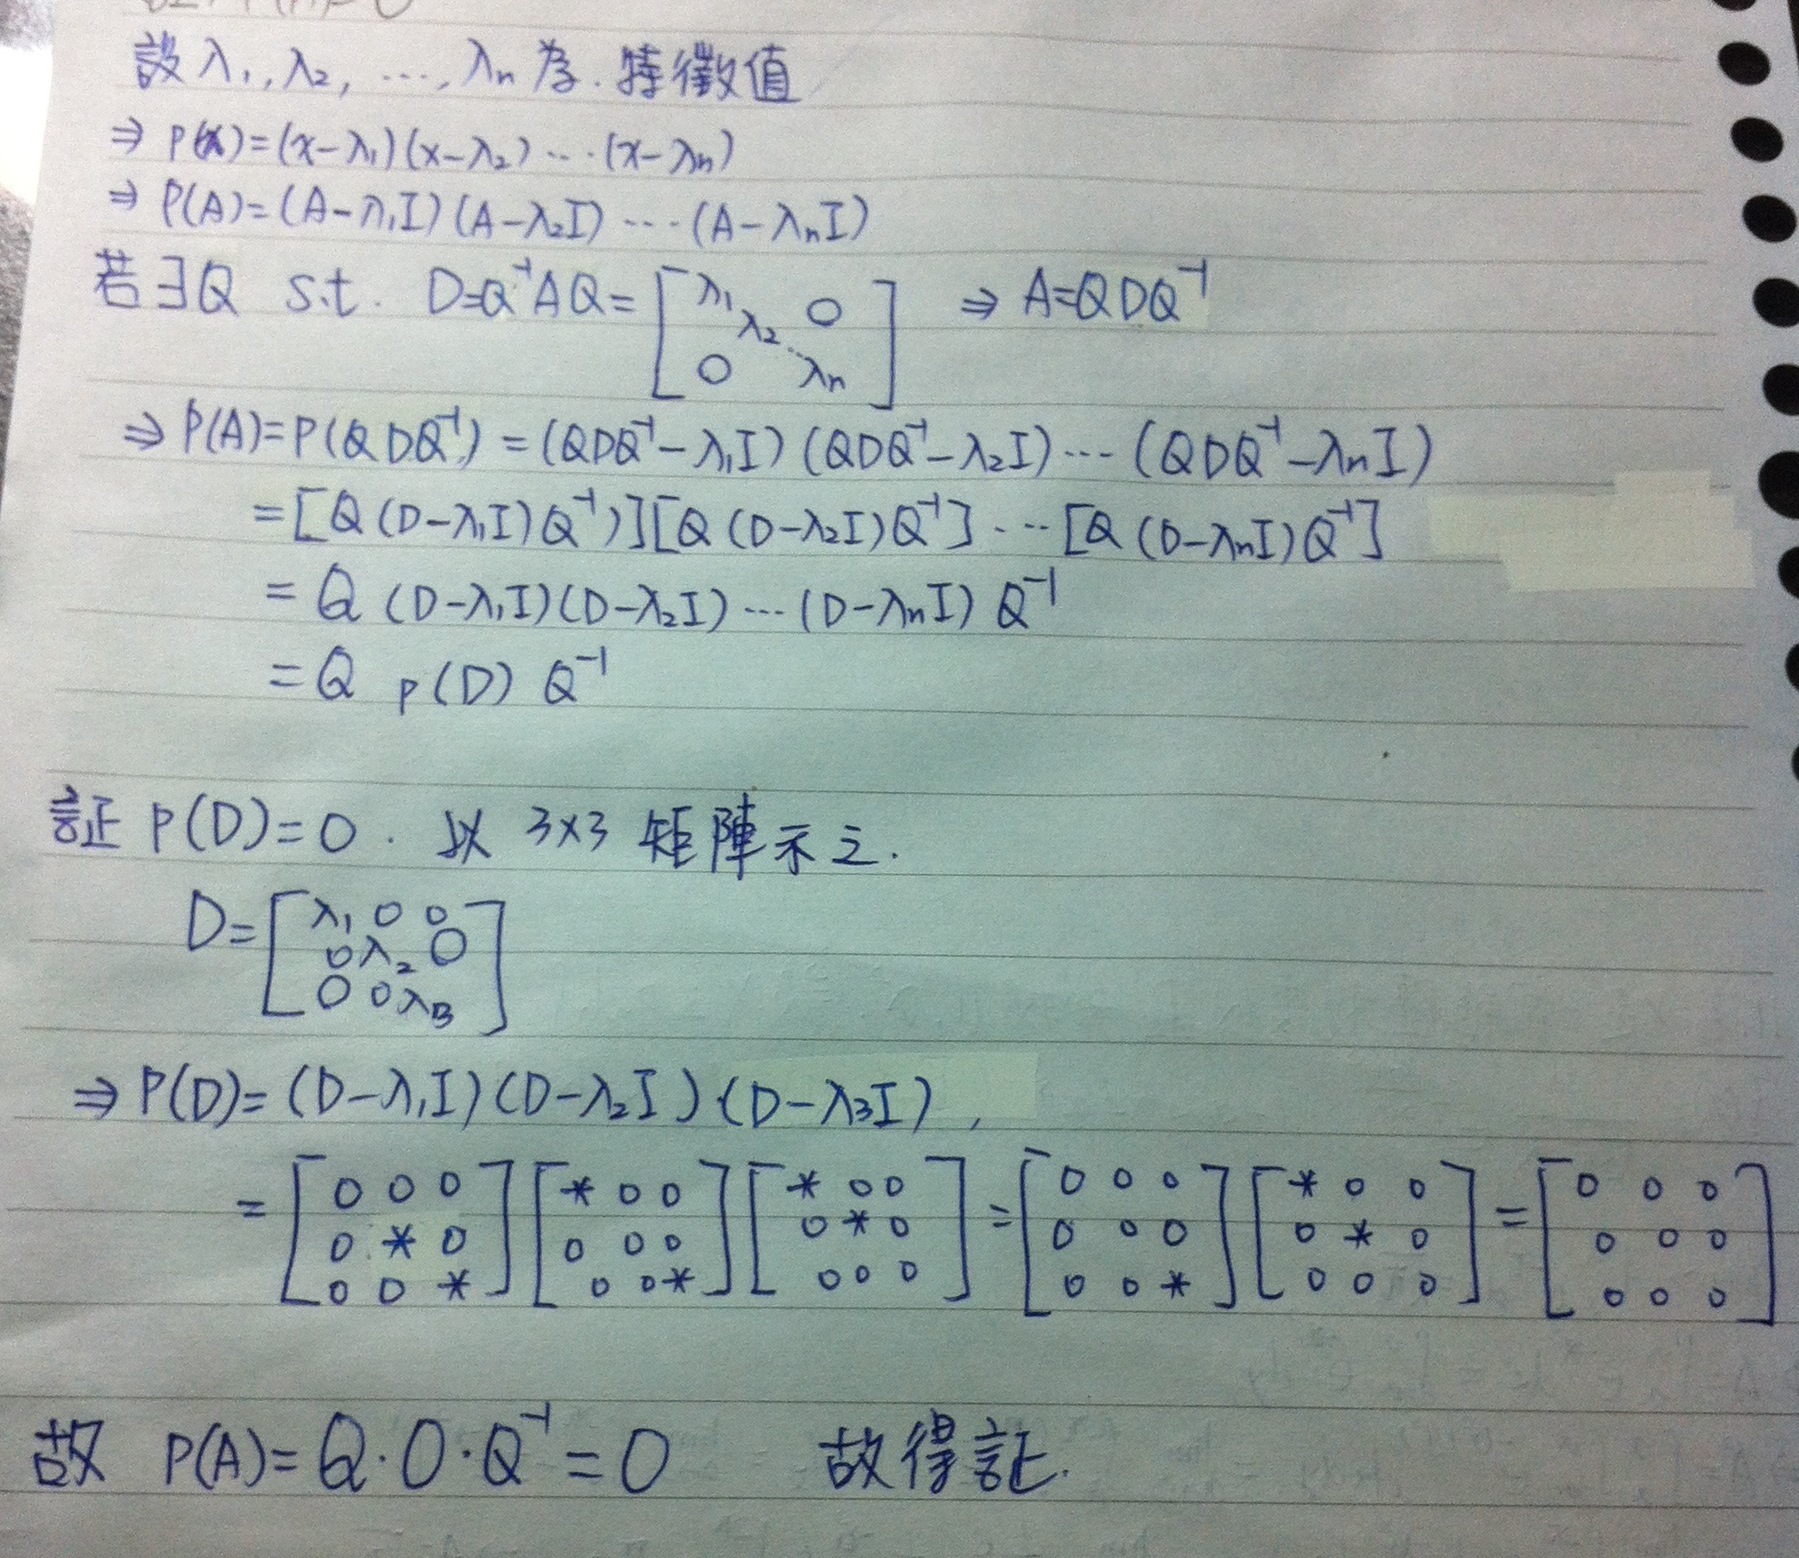 設 λ₁, λ₂, …, λn 為. 特徵值
⇒ P(x)=(x-λ₁)(x-λ₂)…(x-λn)
⇒ P(A)=(A-λ₁I)(A-λ₂I)…(A-λnI)
若 ∃Q s.t. D=Q⁻¹AQ= [λ₁ λ₂ ⋱ λn 0 0] ⇒ A=QDQ⁻¹
⇒ P(A)=P(QDQ⁻¹)=(QDQ⁻¹-λ₁I)(QDQ⁻¹-λ₂I)…(QDQ⁻¹-λnI)
=[Q(D-λ₁I)Q⁻¹)][Q(D-λ₂I)Q⁻¹]…[Q(D-λnI)Q⁻¹]
= Q (D-λ₁I)(D-λ₂I)…(D-λnI) Q⁻¹
= Q P(D) Q⁻¹
証 P(D)=0. 以 3×3 矩陣示之.
D= [λ₁ 0 0
0 λ₂ 0
0 0 λ₃]
⇒ P(D)= (D-λ₁I)(D-λ₂I)(D-λ₃I),
= [0 0 0; 0 * 0; 0 0 *] [* 0 0; 0 0 0; 0 0 *] [* 0 0; 0 * 0; 0 0 0] = [0 0 0; 0 0 0; 0 0 *] [* 0 0; 0 * 0; 0 0 0] = [0 0 0; 0 0 0; 0 0 0]
故 P(A)= Q·O·Q⁻¹ = O 故得証.